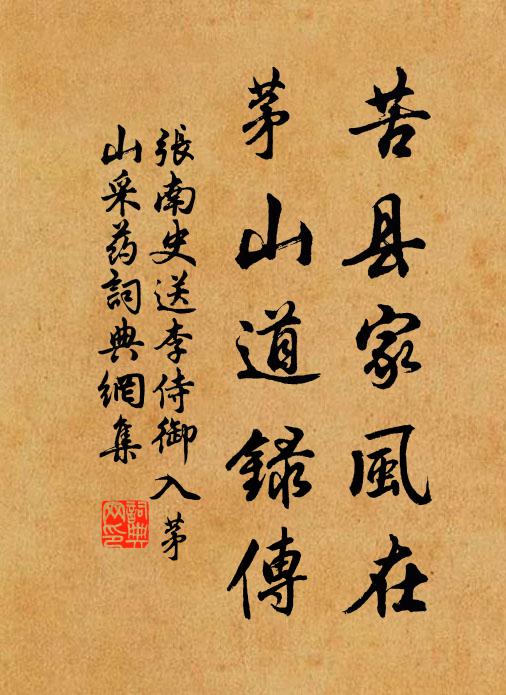 苦县家風在
茅山道錄傳
張南史送李侍御入茅
山采药詞典網集
詞典
网印